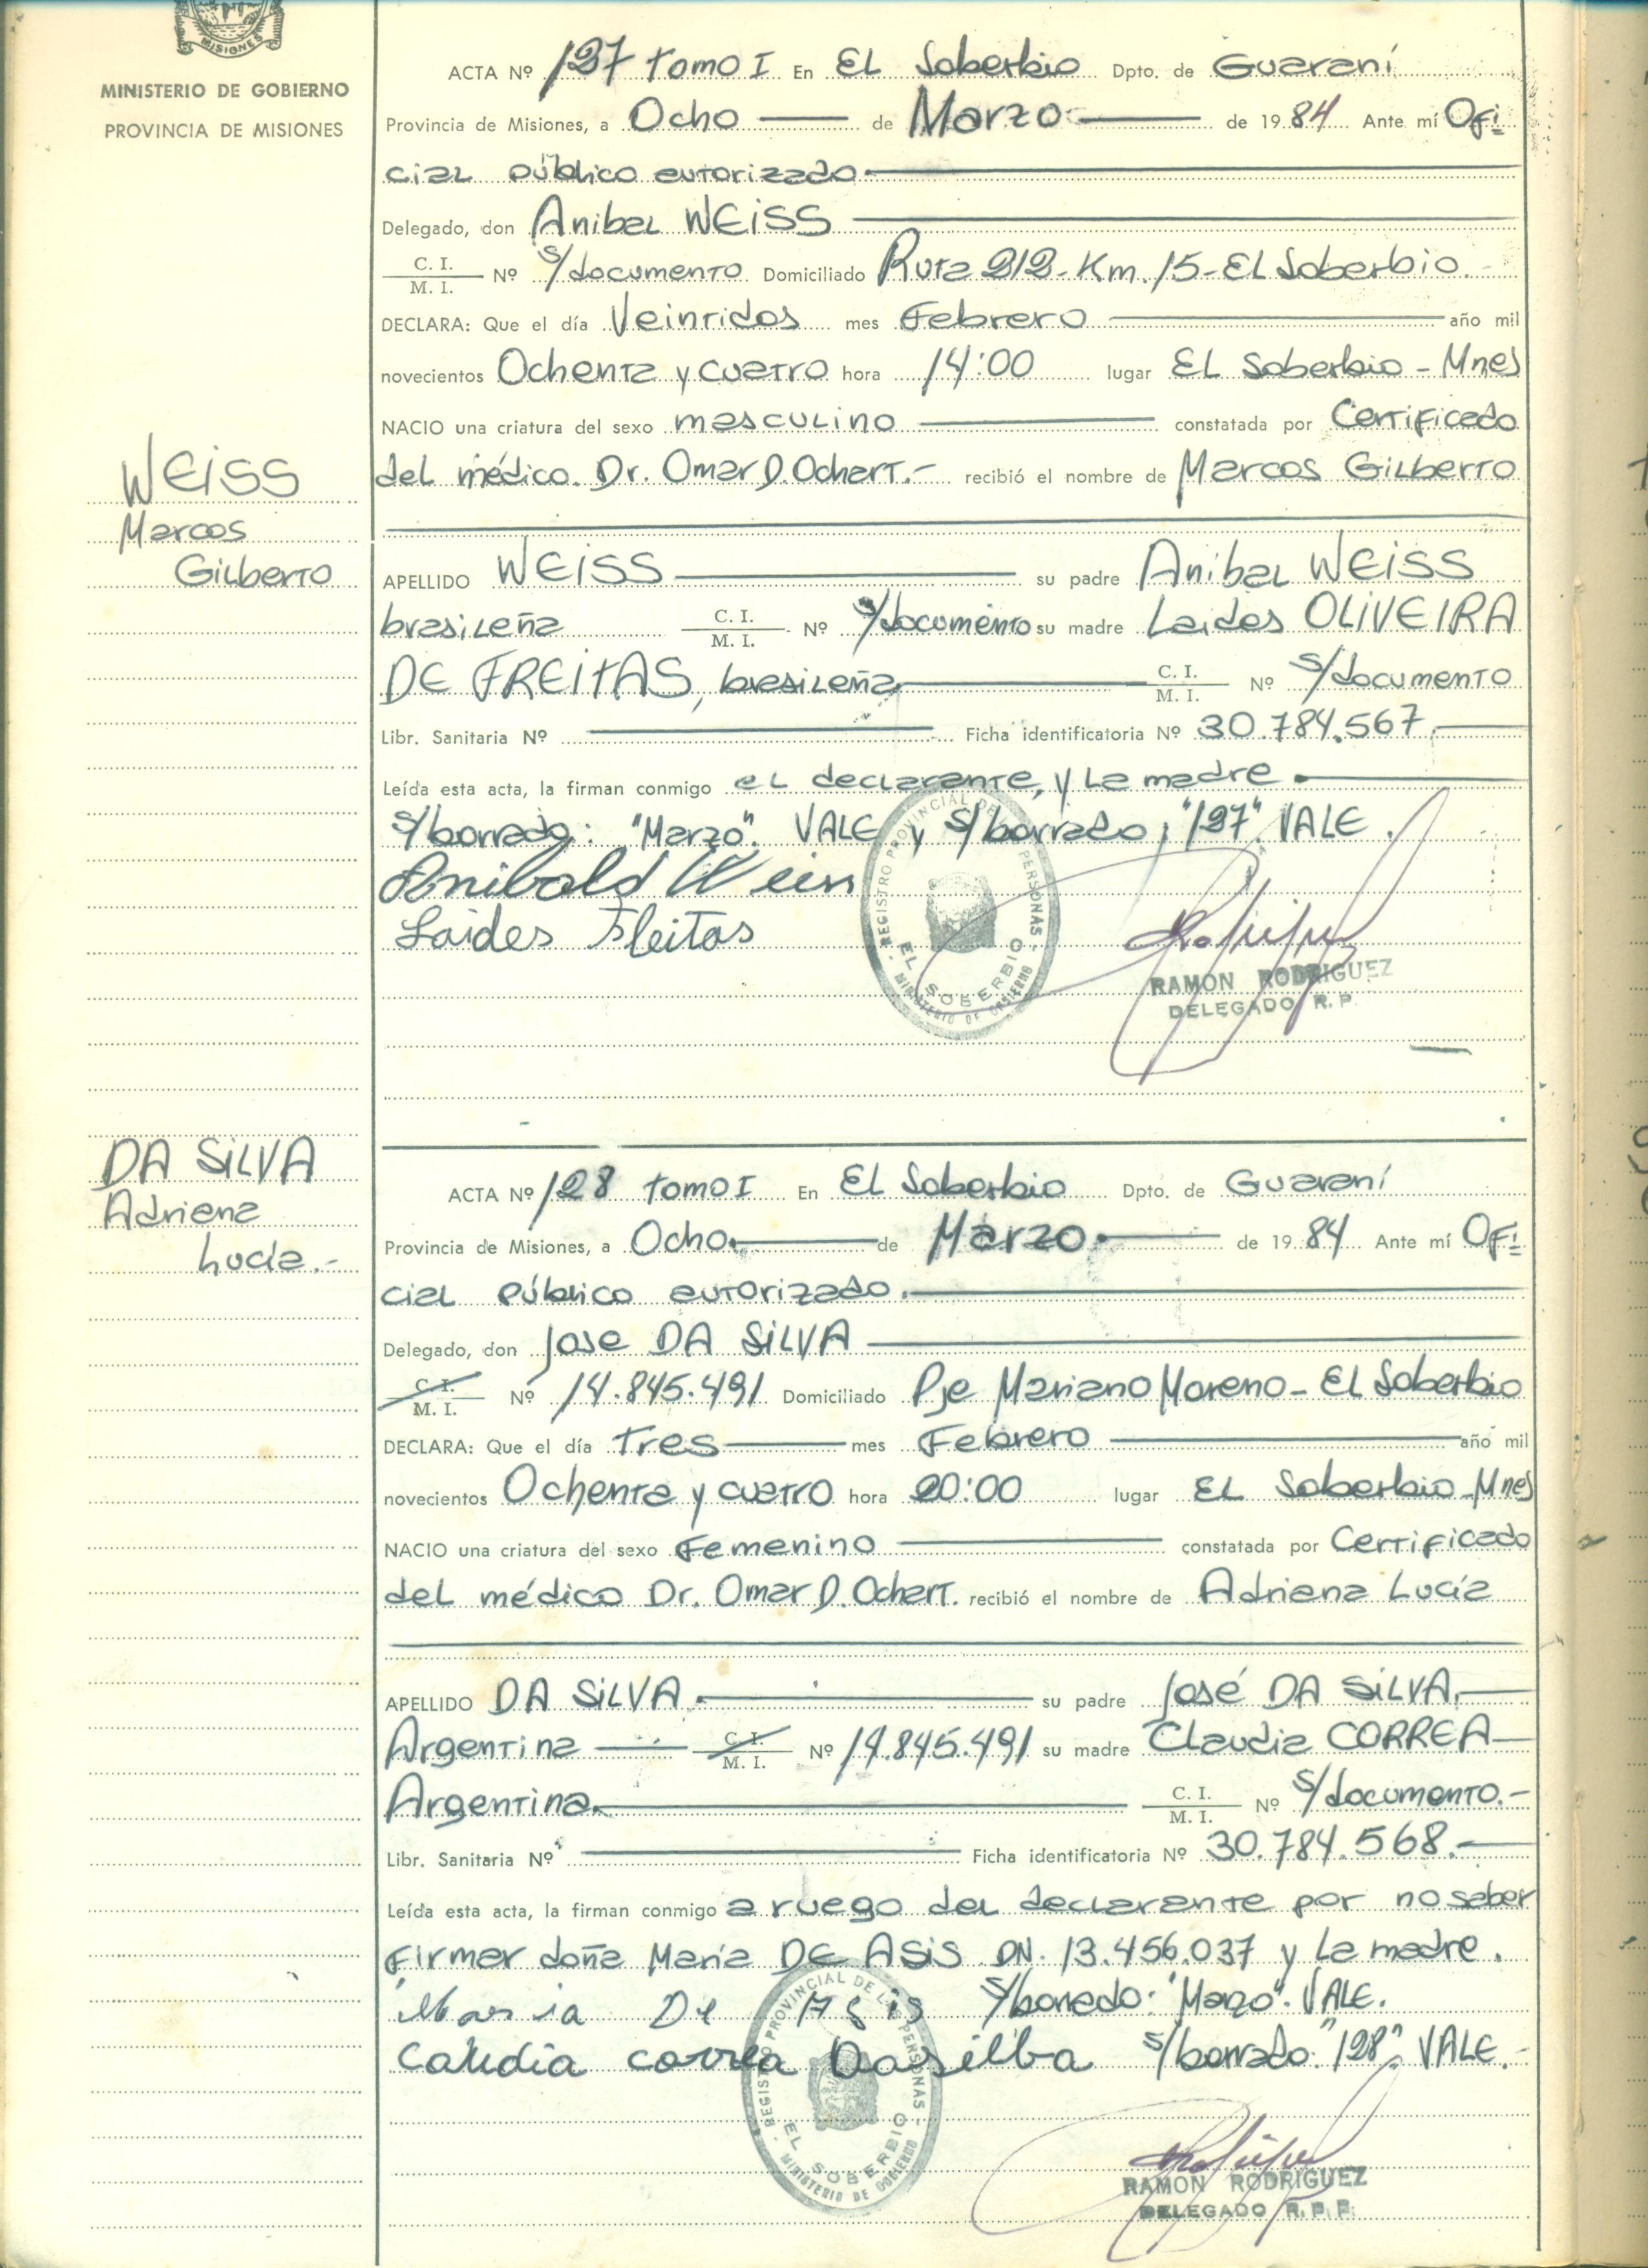 MISIONES
MINISTERIO DE GOBIERNO
PROVINCIA DE MISIONES
ACTA Nº 127 tomo I En EL Soberbio Dpto. de Guaraní
Provincia de Misiones, a Ocho de Marzo de 1984 Ante mí Ofi
cial público autorizado
Delegado, don Anibal WEISS
C. I.
M. I. Nº s/documento Domiciliado Ruta 212-Km.15-EL Soberbio.
DECLARA: Que el día Veintidos mes Febrero año mil
novecientos Ochenta y cuatro hora 14:00 lugar EL Soberbio - Mnes
NACIO una criatura del sexo masculino constatada por Certificado
del médico. Dr. Omar D. Ochart.- recibió el nombre de Marcos Gilberto
WEISS
Marcos
Gilberto
APELLIDO WEISS su padre Anibal WEISS
brasileña C. I.
M. I. Nº s/documento su madre Laides OLIVEIRA
DE FREITAS, brasileña C. I.
M. I. Nº s/documento
Libr. Sanitaria Nº Ficha identificatoria Nº 30.784.567.
Leída esta acta, la firman conmigo el declarante, y la madre.
s/borrado: "Marzo". VALE y s/borrado; "127" VALE.
Anibald Weiss
Laides Fleitas
REGISTRO PROVINCIAL DE LAS PERSONAS
EL SOBERBIO
MINISTERIO DE GOBIERNO
RAMON RODRIGUEZ
DELEGADO R. P.
DA SILVA
Adriana
Lucia.-
ACTA Nº 128 tomo I En EL Soberbio Dpto. de Guaraní
Provincia de Misiones, a Ocho. de Marzo. de 1984 Ante mí Ofi
cial público autorizado.
Delegado, don Jose DA SILVA
C. I.
M. I. Nº 14.845.491 Domiciliado Pje Mariano Moreno - EL Soberbio
DECLARA: Que el día tres mes Febrero año mil
novecientos Ochenta y cuatro hora 20:00 lugar EL Soberbio - Mnes
NACIO una criatura del sexo Femenino constatada por Certificado
del médico Dr. Omar D. Ochart. recibió el nombre de Adriana Lucía
APELLIDO DA SILVA. su padre José DA SILVA.
Argentina C. I.
M. I. Nº 14.845.491 su madre Claudia CORREA
Argentina. C. I.
M. I. Nº s/documento.-
Libr. Sanitaria Nº Ficha identificatoria Nº 30.784.568.
Leída esta acta, la firman conmigo a ruego del declarante por no saber
firmar doña Maria DE ASIS DN. 13.456.037 y la madre.
Maria De Asis s/borrado: "Marzo". VALE.
Caludia correa Dasilba s/borrado: "128" VALE.-
REGISTRO PROVINCIAL DE LAS PERSONAS
EL SOBERBIO
MINISTERIO DE GOBIERNO
RAMON RODRIGUEZ
DELEGADO R. P. P.